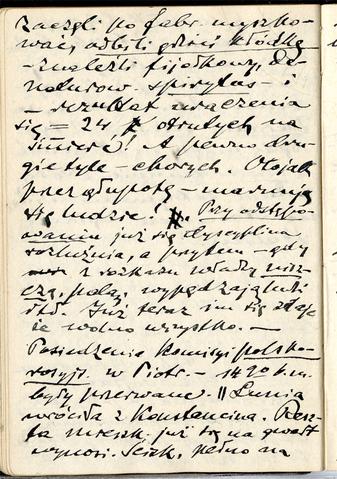 zaczęli po fabr. myszko-
wać, odbili gdzieś kłódkę
- znaleźli fijołkowy, de-
naturow. spirytus - i
- rezultat uraczenia
się = 24 otrutych na
śmierć! A pewno dru-
gie tyle - chorych. Otóż jak
przez głupotę - marnują
się ludzie! Przy odstępo-
waniu już się dyscyplina
rozluźnia, a przytem - gdy
z rozkazu władzy nisz-
czą, palą, wypędzają ludzi
itd. Już teraz im się zdaje
że wolno wszystko. -
Posiedzenia Komisji polsko-
rosyjs. w Piotr. - są 20 b.m.
były przerwane. || Lunia
wróciła z Konstancina. Resz-
ta mieszk. już się na gwałt
wynosi. Ścisk, pełno na